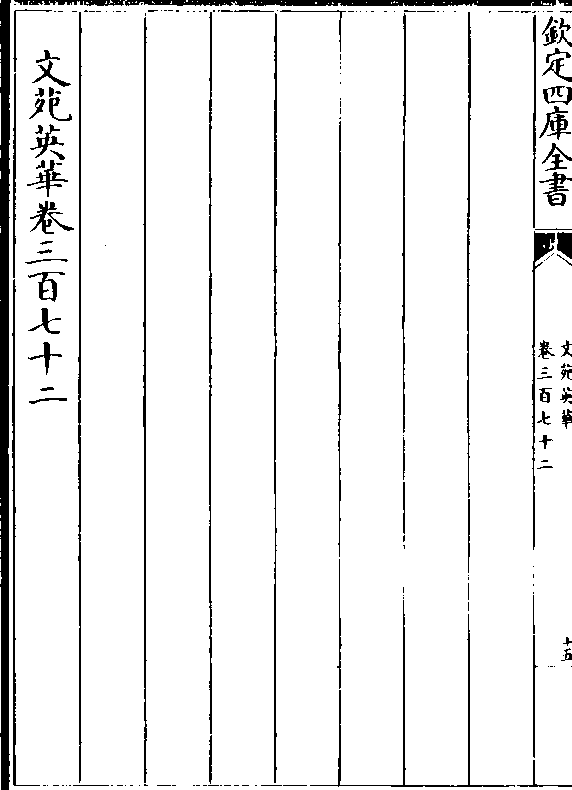 欽定四庫全書
文苑英華
卷三百七十二
十五
文苑英華卷三百七十二